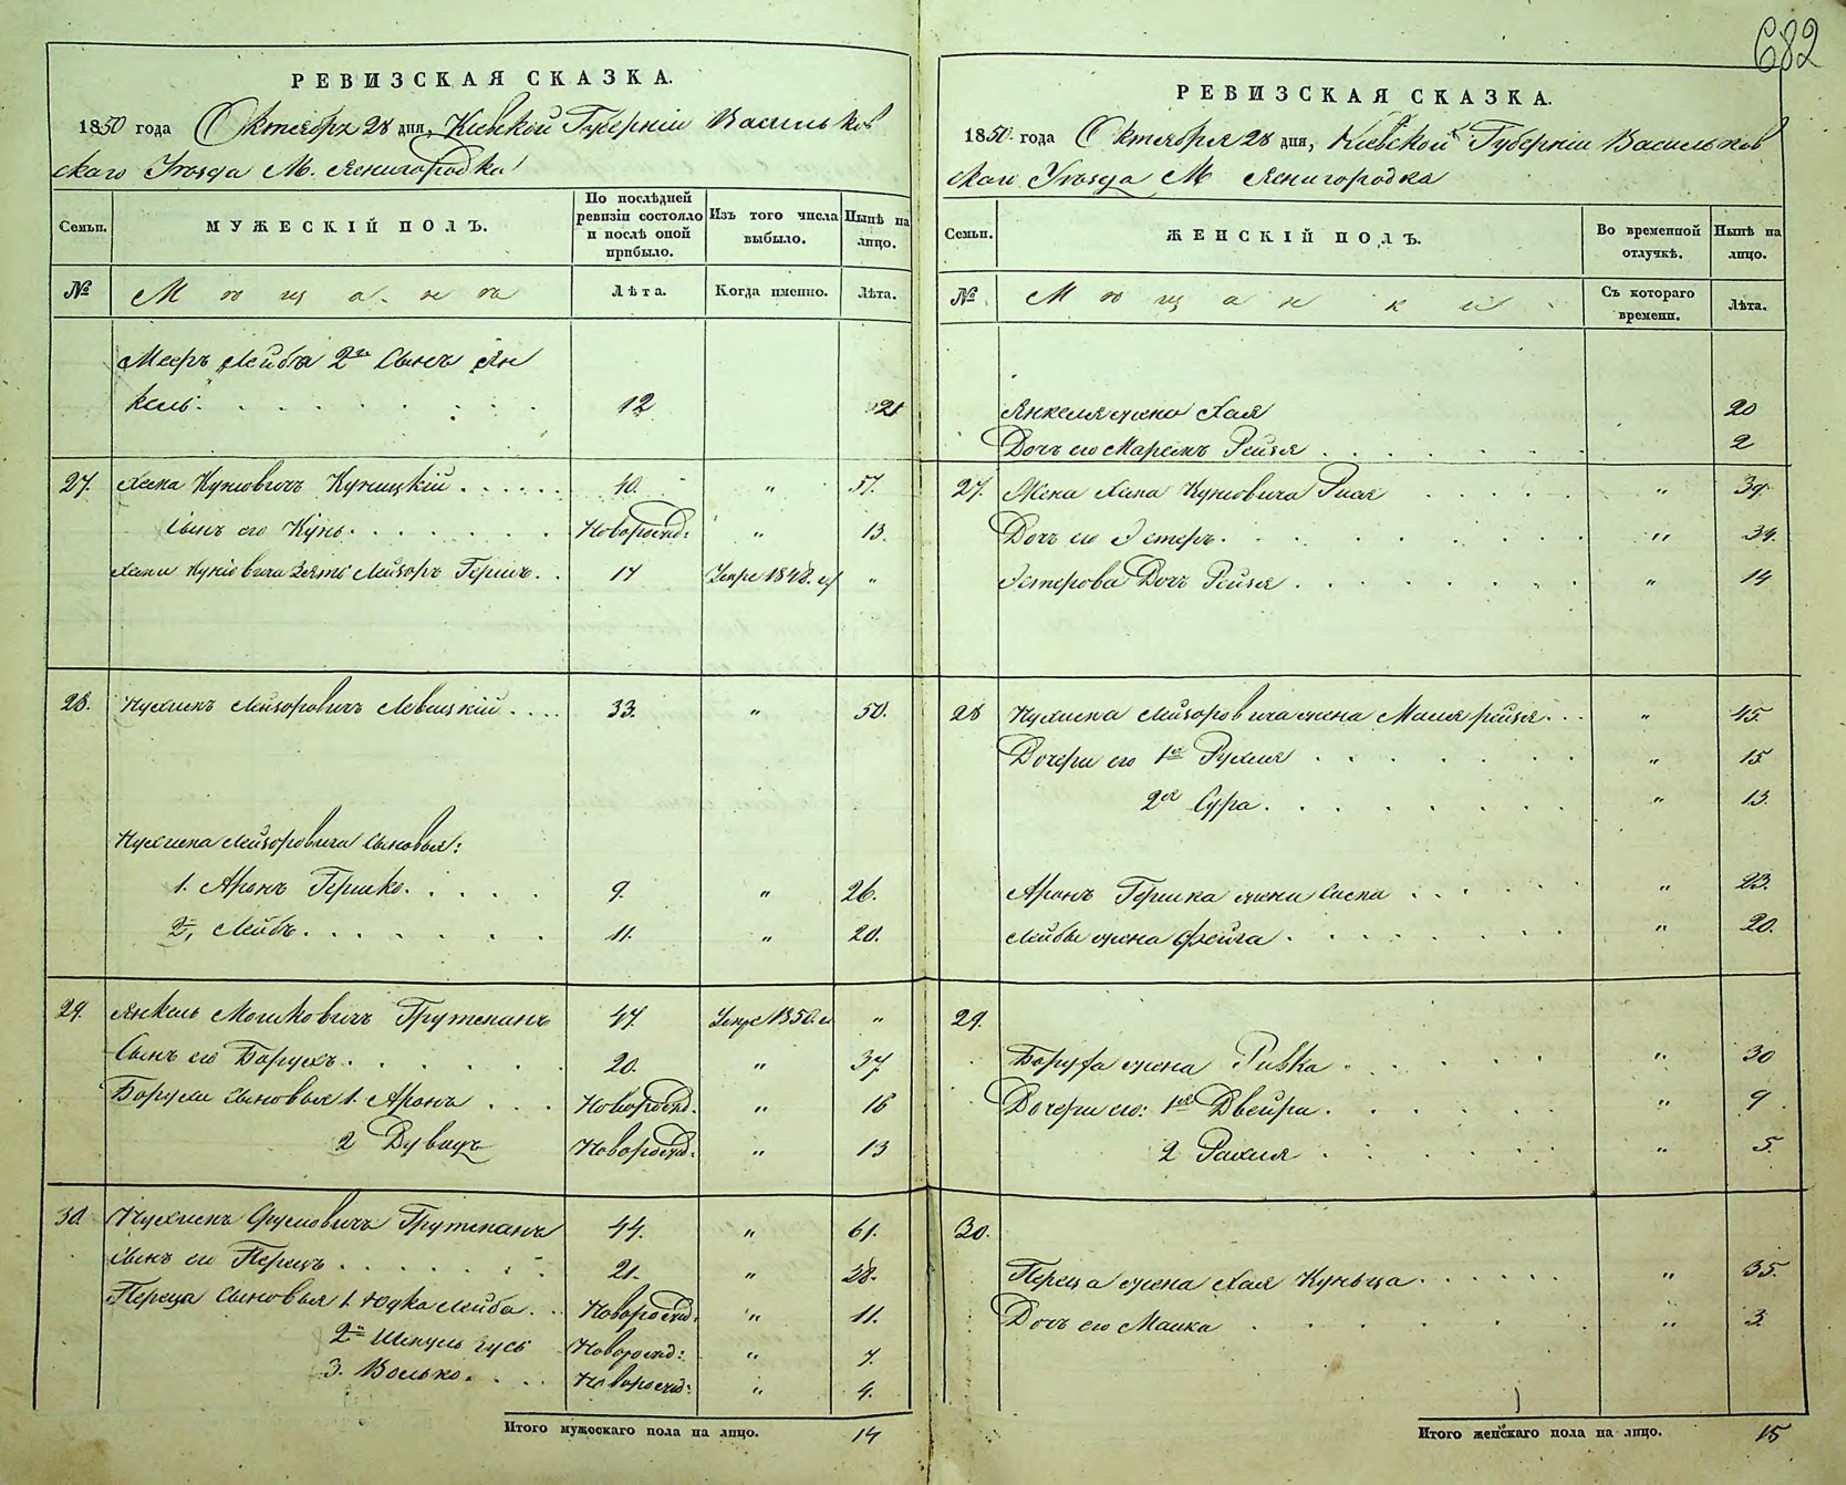 682
РЕВИЗСКАЯ СКАЗКА.
1850 года Октября 28 дня, Киевской Губерніи Васильков
скаго Уѣзда М. Ясногородка
Семьи. МУЖЕСКІЙ ПОЛЪ. По послѣдней ревизіи состояло и послѣ оной прибыло. Изъ того числа выбыло. Нынѣ на лицо.
№ Мѣщане Лѣта. Когда именно. Лѣта.
Мееръ Лейба 2й Сынъ Ян
кель 12 21
27. Хаима Куновичъ Куницкій 40. " 57.
Сынъ его Кунь Новорожд: " 13.
Зять Лейзоръ Герш 17 Умре 1848. "
28. Нухимъ Лейзоровичъ Левицкій 33. " 50.
Нухима Лейзоровича Сыновья:
1. Аронъ Гершко. 9. " 26.
2, Лейбъ. 11. " 20.
29. Янкель Мошковичъ Грутманъ 47. Умре 1850. "
Сынъ его Борухъ. 20. " 37
Боруха Сыновья 1. Аронъ Новорожд. " 16
2 Дувидъ Новорожд. " 13
30 Нухимъ Грутманъ 44. " 61.
Сынъ его Перецъ 21. " 38.
Переца Сыновья 1. Юдка Лейба Новорожд. " 11.
2й Шмуль Новорожд: " 7.
3. Волько. Новорожд: " 4.
Итого мужескаго пола на лицо. 14
РЕВИЗСКАЯ СКАЗКА.
1850 года Октября 28 дня, Кіевской Губерніи Васильков
скаго Уѣзда М Ясногородка
Семьи. ЖЕНСКІЙ ПОЛЪ. Во временной отлучкѣ. Нынѣ на лицо.
№ Мѣщанки Съ котораго времени. Лѣта.
Янкеля жена Хая 20
Дочь его Марьямъ Рейзя 2
27. Жена Куновича Рися " 39
Дочь его Эстеръ. " 34.
Эстерова Дочь Рейзя " 14
28 Нухима Лейзоровича жена Маля рейзя " 45
Дочери его 1я Рухля " 15
2я Сура. " 13.
Аронъ Гершка жена " 23.
Лейбы жена Фейга " 20.
29.
Боруха жена Ривка " 30
Дочери его: 1я Двейра. " 9
2 Рахля " 5.
30.
Переца жена Хая " 35.
Дочь его Малка " 3
Итого женскаго пола на лицо. 15